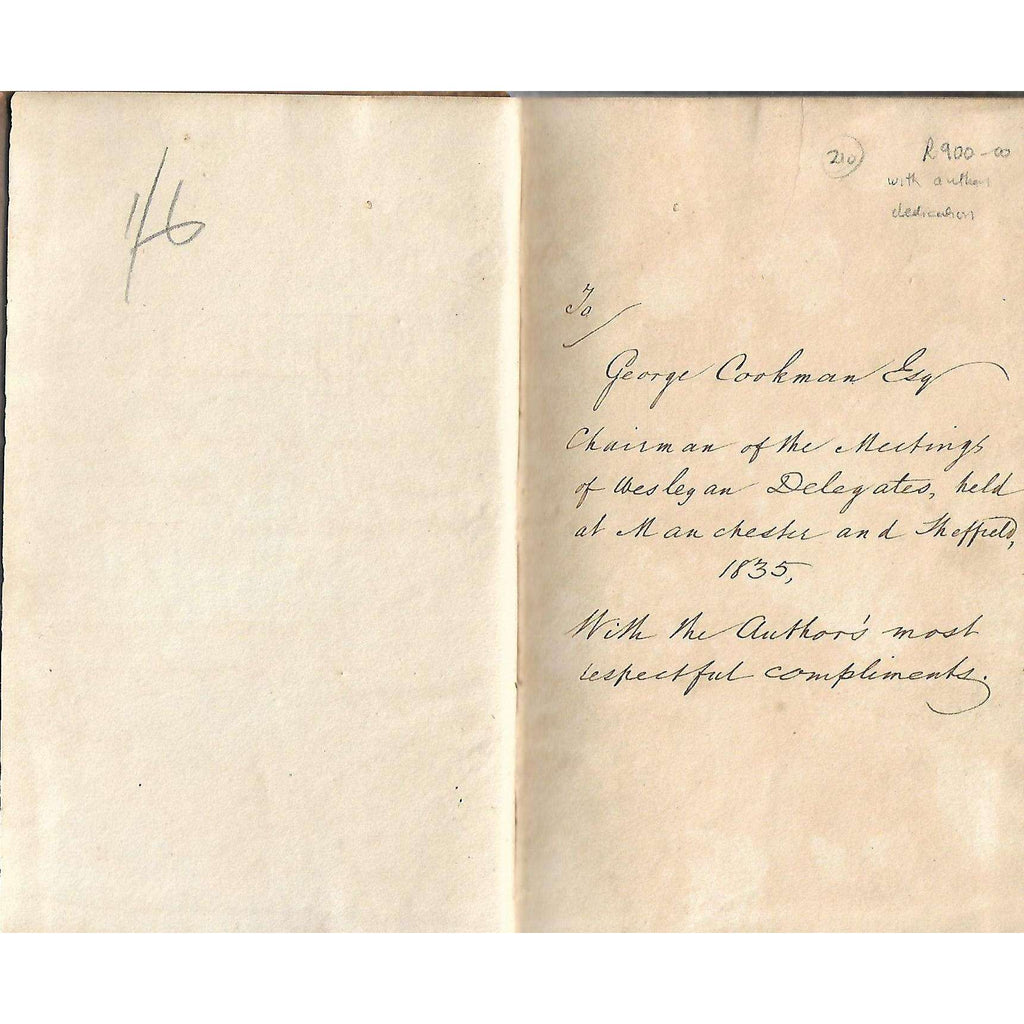 1/6
210
R900-00
with authors
dedication
To
George Cookman Esq
Chairman of the Meetings
of Wesleyan Delegates, held
at Manchester and Sheffield,
1835,
With the Author's most
respectful compliments.